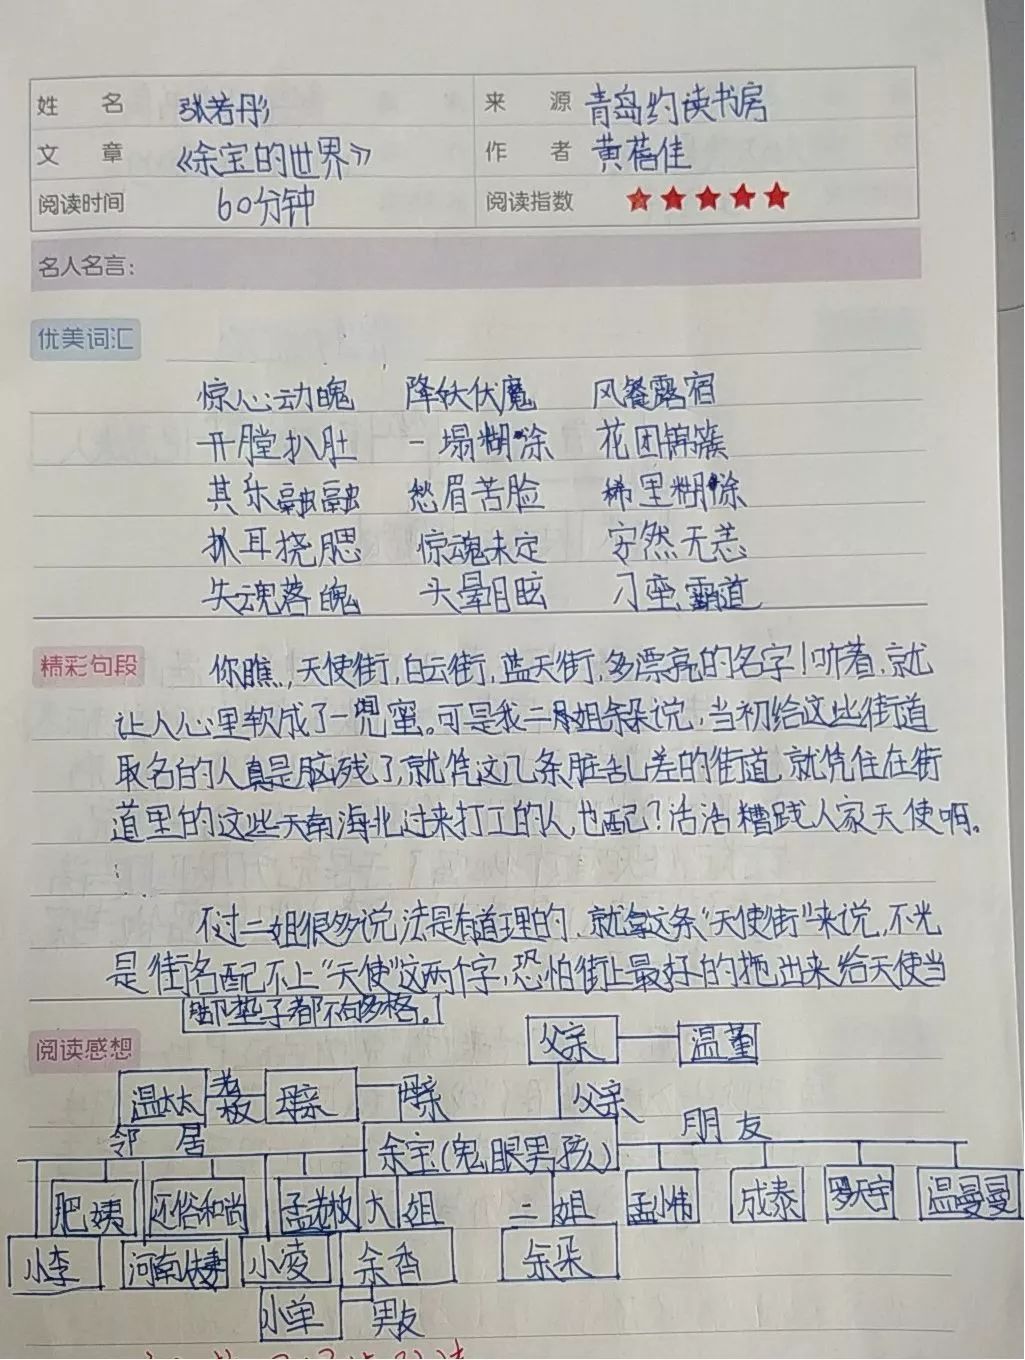 姓名 张若彤 来源 青岛约读书房
文章 《余宝的世界》 作者 黄蓓佳
阅读时间 60分钟 阅读指数 ★★★★★
名人名言：
优美词汇
惊心动魄 降妖伏魔 风餐露宿
开膛扒肚 一塌糊涂 花团锦簇
其乐融融 愁眉苦脸 稀里糊涂
抓耳挠腮 惊魂未定 安然无恙
失魂落魄 头晕目眩 刁蛮霸道
精彩句段 你瞧，天使街，白云街，蓝天街，多漂亮的名字！听着，就
让人心里软成了一兜蜜。可是我二姐余朵说，当初给这些街道
取名的人真是脑残了，就凭这几条脏乱差的街道，就凭住在街
道里的这些天南海北过来打工的人，也配？活活糟践人家天使啊。
不过二姐很多说法是有道理的，就拿这条“天使街”来说，不光
是街名配不上“天使”这两个字，恐怕街上最好的拖出来给天使当
脚垫子都不够格。
阅读感想 父亲 温董
温太太 老板 母亲 母亲 父亲
邻居 余宝(鬼眼男孩) 朋友
肥姨 还俗和尚 大姐 二姐 孟小伟 成泰 罗天宇 温曼曼
小李 河南夫妻 小凌 余香 余朵
小单 男友